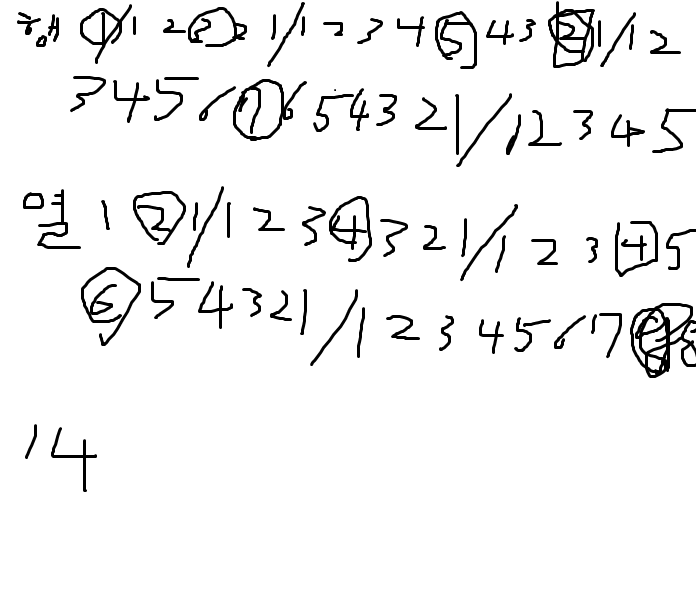 행 1/1 2 3 2 1/1 2 3 4 5 4 3 2 1/1 2
3 4 5 6 7 6 5 4 3 2 1/1 2 3 4 5
열 1 2 1/1 2 3 4 3 2 1/1 2 3 4 5
6 5 4 3 2 1/1 2 3 4 5 6 7
14